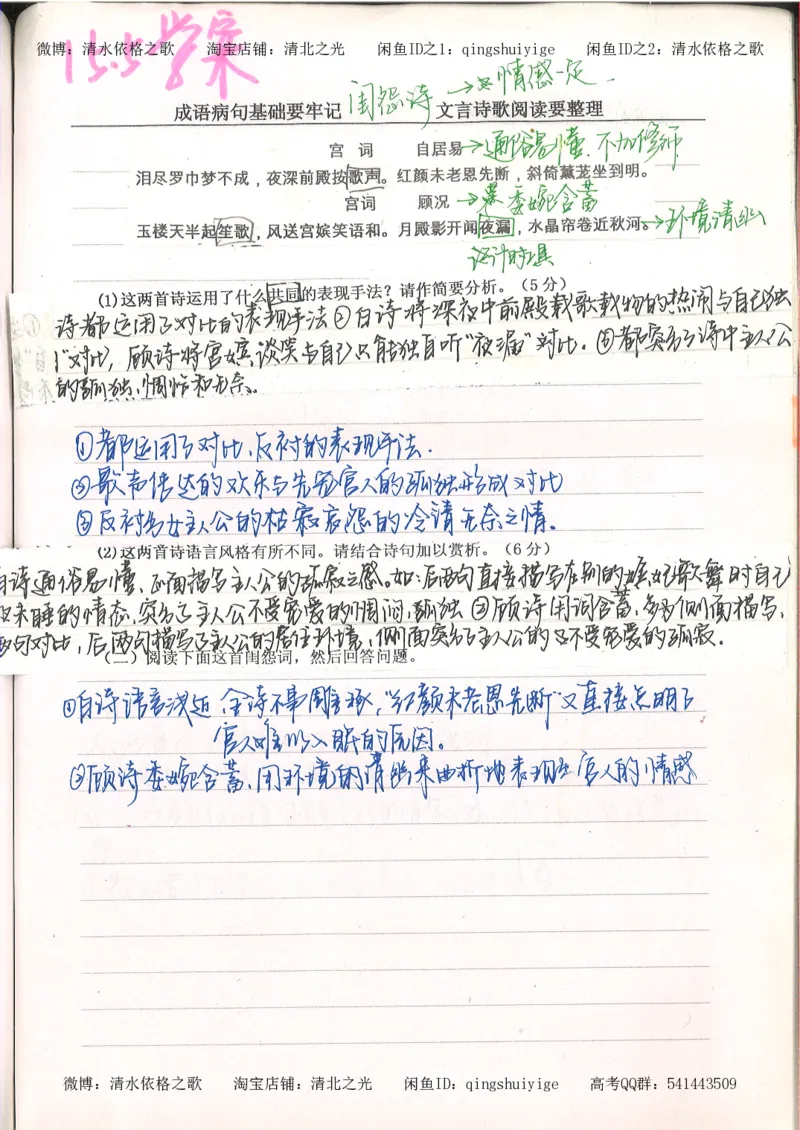 微博：清水依格之歌 淘宝店铺：清北之光 闲鱼ID之1：qingshuiyige 闲鱼ID之2：清水依格之歌
15.5学案
闺怨诗 → 情感一定
成语病句基础要牢记 文言诗歌阅读要整理
宫 词 自居易→通俗易懂、不加修饰
泪尽罗巾梦不成，夜深前殿按歌声。红颜未老恩先断，斜倚薰茏坐到明。
宫词 顾况→委婉含蓄
玉楼天半起笙歌，风送宫嫔笑语和。月殿影开闻夜漏，水晶帘卷近秋河。→环境清幽
(1)这两首诗运用了什么共同的表现手法？请作简要分析。（5分）
诗都运用了对比的表现手法①白诗将深夜中前殿载歌载物的热闹与自己独
对比，顾诗将宫嫔谈笑与自己只能独自听“夜漏”对比．②都突出了诗中主人公
的孤独、惆怅和无奈。
①都运用了对比、反衬的表现手法．
②歌声传达的欢乐与失宠宫人的孤独形成对比
③反衬出女主人公的枯寂哀怨的冷清无奈之情。
(2)这两首诗语言风格有所不同。请结合诗句加以赏析。（6分）
白诗通俗易懂，正面描写主人公的孤寂之感．如：后两句直接描写在别的嫔妃歌舞时自己
未睡的情态，突出了主人公不受宠爱的惆闷、孤独②顾诗用词含蓄，多为侧面描写，
两句对比，后两句描写了主人公的居住环境，侧面突出了主人公的不受宠爱的孤寂．
(二）阅读下面这首闺怨词，然后回答问题。
①白诗语言浅近 全诗不事雕琢，“红颜未老恩先断”又直接点明了
宫人难以入眠的原因。
②顾诗委婉含蓄、用环境的清幽来曲折地表现出宫人的情感
微博：清水依格之歌 淘宝店铺：清北之光 闲鱼ID：qingshuiyige 高考QQ群：541443509